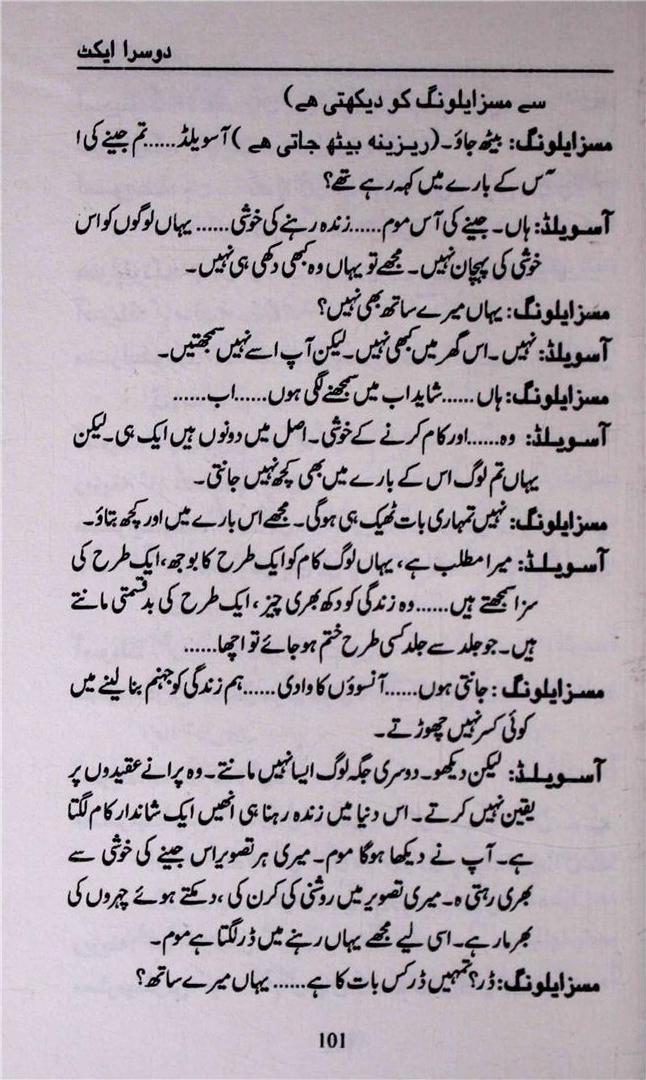 دوسرا ایکٹ
سے مسز ایلونگ کو دیکھتی ہے)
مسز ایلونگ: بیٹھ جاؤ۔ (ریزینہ بیٹھ جاتی ہے) آسویلڈ......تم جینے کی ا
آس کے بارے میں کہہ رہے تھے؟
آسویلڈ: ہاں۔ جینے کی آس موم......زندہ رہنے کی خوشی......یہاں لوگوں کو اس
خوشی کی پہچان نہیں۔ مجھے تو یہاں وہ کبھی دکھی ہی نہیں۔
مسز ایلونگ: یہاں میرے ساتھ بھی نہیں؟
آسویلڈ: نہیں۔ اس گھر میں کبھی نہیں۔ لیکن آپ اسے نہیں سمجھتیں۔
مسز ایلونگ: ہاں......شاید اب میں سمجھنے لگی ہوں......اب......
آسویلڈ: وہ......اور کام کرنے کے خوشی۔ اصل میں دونوں ہیں ایک ہی۔ لیکن
یہاں تم لوگ اس کے بارے میں بھی کچھ نہیں جانتی۔
مسز ایلونگ: نہیں تمہاری بات ٹھیک ہی ہوگی۔ مجھے اس بارے میں اور کچھ بتاؤ۔
آسویلڈ: میرا مطلب ہے، یہاں لوگ کام کو ایک طرح کا بوجھ، ایک طرح کی
سزا سمجھتے ہیں......وہ زندگی کو دکھ بھری چیز، ایک طرح کی بدقسمتی مانتے
ہیں۔ جو جلد سے جلد کسی طرح ختم ہو جائے تو اچھا......
مسز ایلونگ: جانتی ہوں......آنسوؤں کا وادی......ہم زندگی کو جہنم بنا لینے میں
کوئی کسر نہیں چھوڑتے۔
آسویلڈ: لیکن دیکھو۔ دوسری جگہ لوگ ایسا نہیں مانتے۔ وہ پرانے عقیدوں پر
یقین نہیں کرتے۔ اس دنیا میں زندہ رہنا ہی انھیں ایک شاندار کام لگتا
ہے۔ آپ نے دیکھا ہوگا موم۔ میری ہر تصویر اس جینے کی خوشی سے
بھری رہتی ہ۔ میری تصویر میں روشنی کی کرن کی، دمکتے ہوئے چہروں کی
بھرمار ہے۔ اسی لیے مجھے یہاں رہنے میں ڈر لگتا ہے موم۔
مسز ایلونگ: ڈر؟ تمہیں ڈر کس بات کا ہے......یہاں میرے ساتھ؟
101